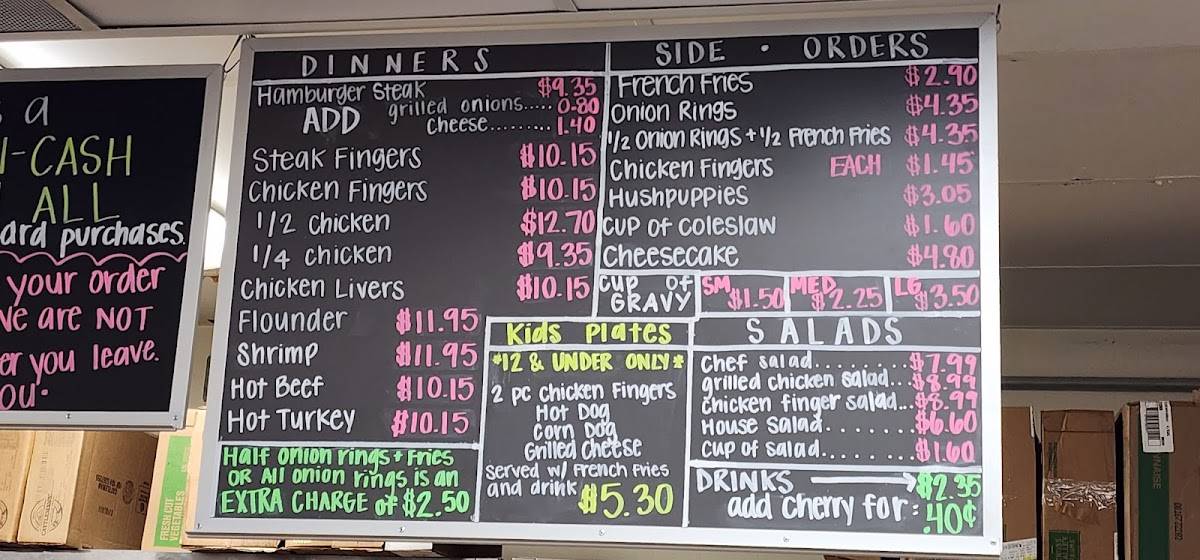 a
-CASH
ALL
ard purchases.
your order
we are NOT
er you leave.
DINNERS
Hamburger Steak $9.35
ADD grilled onions..... 0.80
cheese......... 1.40
Steak Fingers $10.15
Chicken Fingers $10.15
1/2 chicken $12.70
1/4 chicken $9.35
Chicken Livers $10.15
Flounder $11.95
Shrimp $11.95
Hot Beef $10.15
Hot Turkey $10.15
Half onion rings + Fries
OR All onion rings is an
EXTRA CHARGE of $2.50
SIDE • ORDERS
French Fries $2.90
Onion Rings $4.35
1/2 Onion Rings + 1/2 French Fries $4.35
Chicken Fingers EACH $1.45
Hushpuppies $3.05
Cup of coleslaw $1.60
Cheesecake $4.80
Cup of GRAVY SM $1.50 MED $2.25 LG $3.50
Kids Plates
*12 & UNDER ONLY*
2 pc chicken Fingers
Hot Dog
Corn Dog
Grilled Cheese
served w/ French Fries
and drink $5.30
SALADS
Chef salad........ $7.99
grilled chicken salad... $8.99
chicken finger salad... $8.99
House Salad........ $6.60
Cup of salad........ $1.60
DRINKS → $2.35
add cherry for: .40¢
FRESH CUT
VEGETABLES